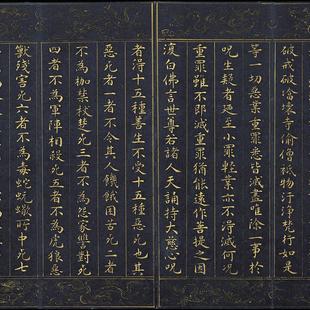 破戒破齋壞寺偷僧祇物汙淨梵行如是
等一切惡業重罪悉皆滅盡唯除一事於
呪生疑者乃至小罪輕業亦不得滅何況
重罪雖不即滅重罪猶能遠作菩提之因
復白佛言世尊若諸人天誦持大悲心呪
者得十五種善生不受十五種惡死也其
惡死者一者不令其人饑餓困苦死二者
不為枷禁杖楚死三者不為怨家讐對死
四者不為軍陣相殺死五者不為虎狼惡
獸殘害死六者不為毒蛇蚖蠍所中死七